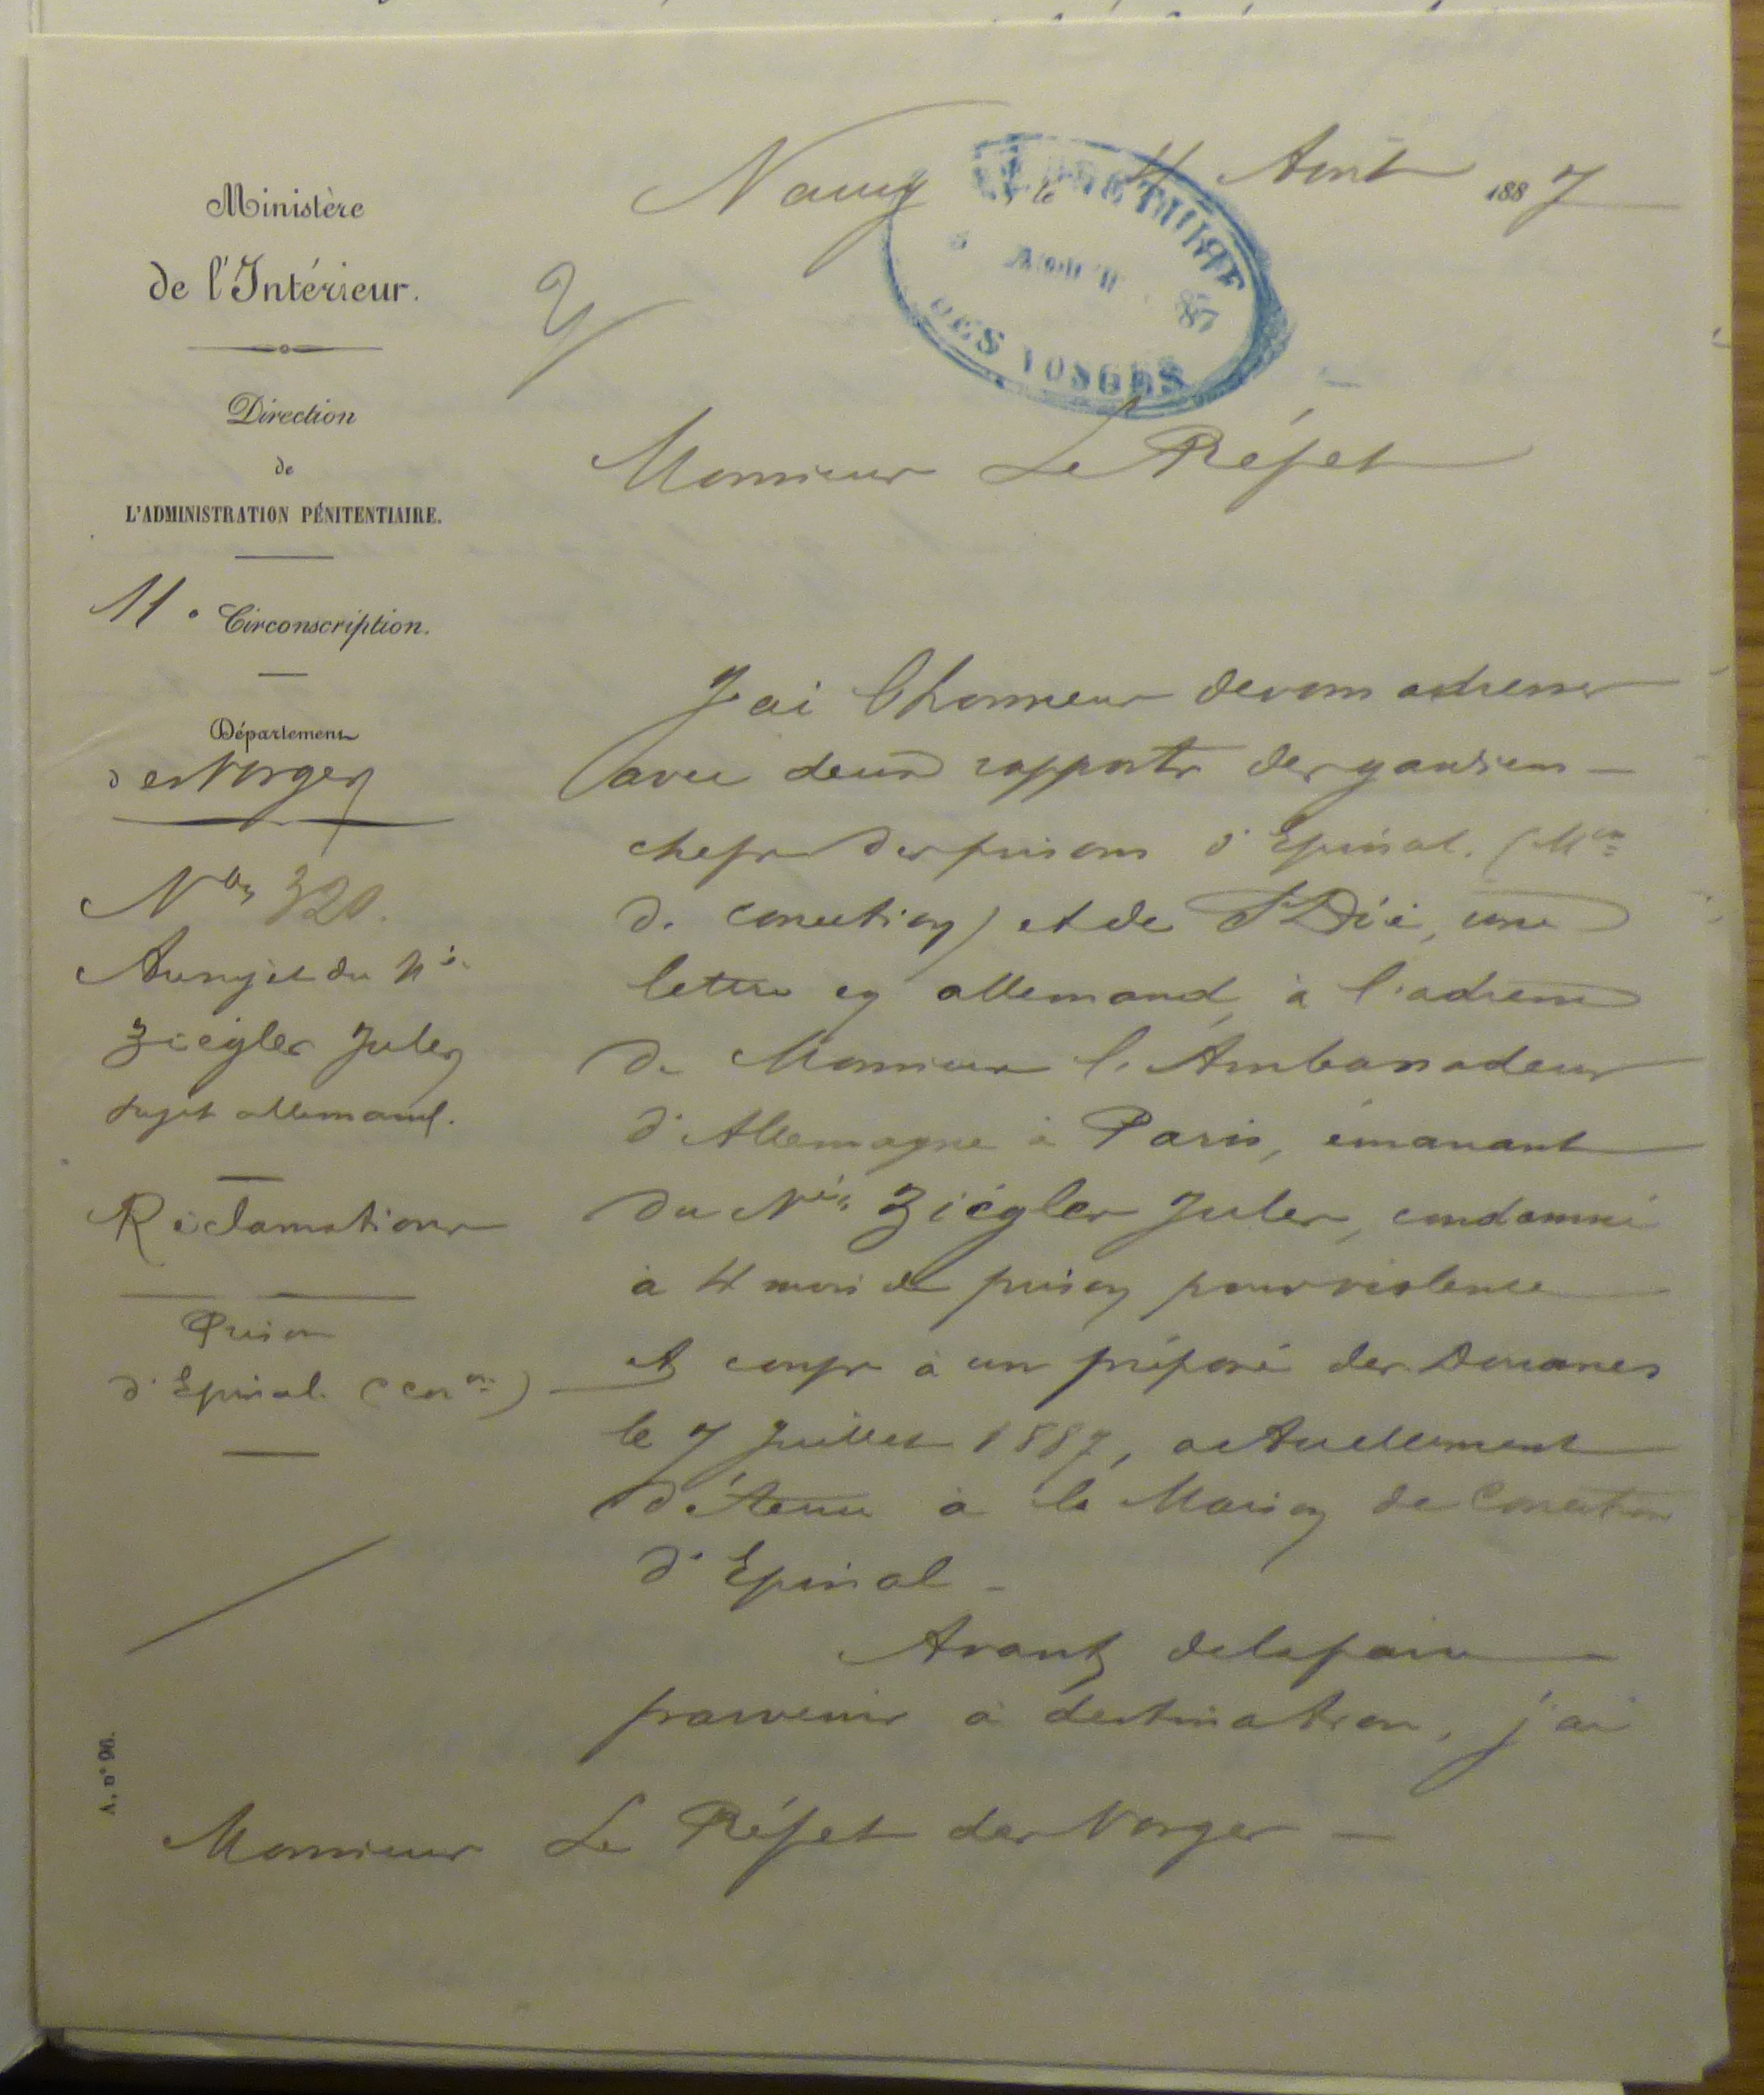 Ministère
de l'Intérieur.
Direction
de
L'ADMINISTRATION PÉNITENTIAIRE.
11e Circonscription.
Département
des Vosges
Nos 320.
Au sujet du Né
Ziégler Jules
sujet allemand.
Réclamations
Prison
d'Epinal (Con on)
A. n° 96.
Nancy le 4 Août 1887
PRÉFECTURE
AOUT 87
DES VOSGES
Monsieur Le Préfet
J'ai l'honneur de vous adresser
avec deux rapports des gardiens
chefs des prisons d'Epinal. (Mon
de correction) et de St Dié, une
lettre en allemand, à l'adresse
de Monsieur l'Ambassadeur
d'Allemagne à Paris, émanant
du Né Ziégler Jules, condamné
à 4 mois de prison pour violence
et coups à un préposé des Douanes
le 7 Juillet 1887, actuellement
détenu à la Maison de Correction
d'Epinal -
Avant de la faire
parvenir à destination, j'ai
Monsieur Le Préfet des Vosges -